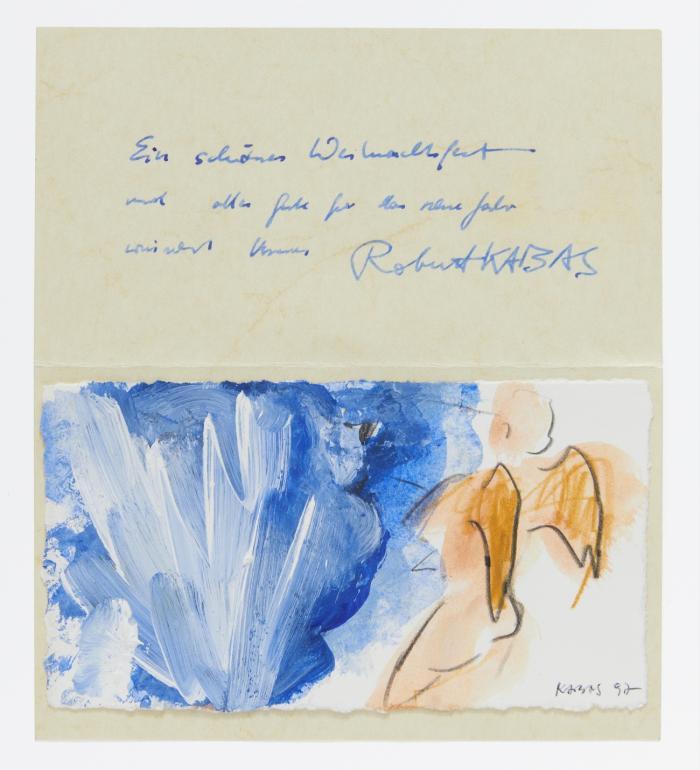 Ein schönes Weihnachtsfest
und alles Gute für das neue Jahr
wünscht Ihnen Robert KABAS
KABAS 97